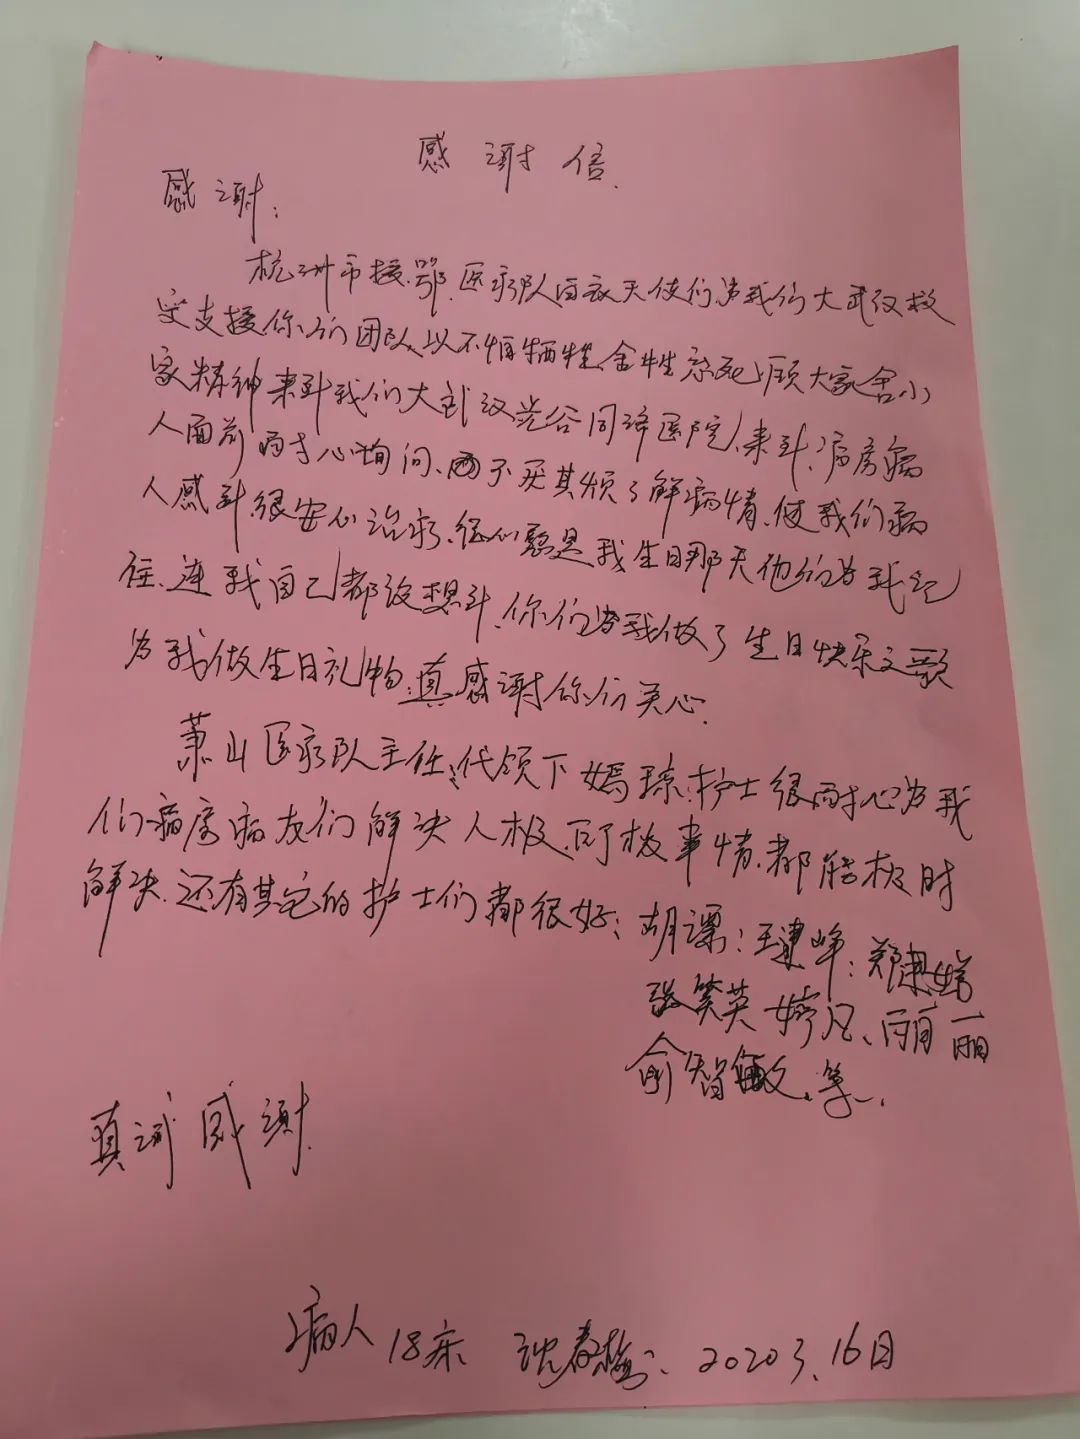 感谢信.
感谢:
杭州市援.鄂.医疗队白衣天使们.为我们大武汉救
灾支援你们团队以不怕牺牲.舍生忘死.顾大家舍小
家精神来到我们大武汉光谷同济医院.来到.病房病
人面前耐心询问.而不厌其烦了解病情.使我们病
人感到很安心治疗.是我生日那天他们为我记
住.连我自己都没想到.你们为我做了生日快乐之歌
为我做生日礼物.真感谢你们关心.
萧山医疗队主任.代领下嫣琼.护士很耐心为我
们病房病友们解决人极.所极事情.都能极时
解决.还有其它的护士们都很好:胡漂:王建峰:郑惠娣
张笑英 婷凡、丽丽
俞智敏.等.
真诚感谢.
病人18床 沈春梅:、2020 3.16日